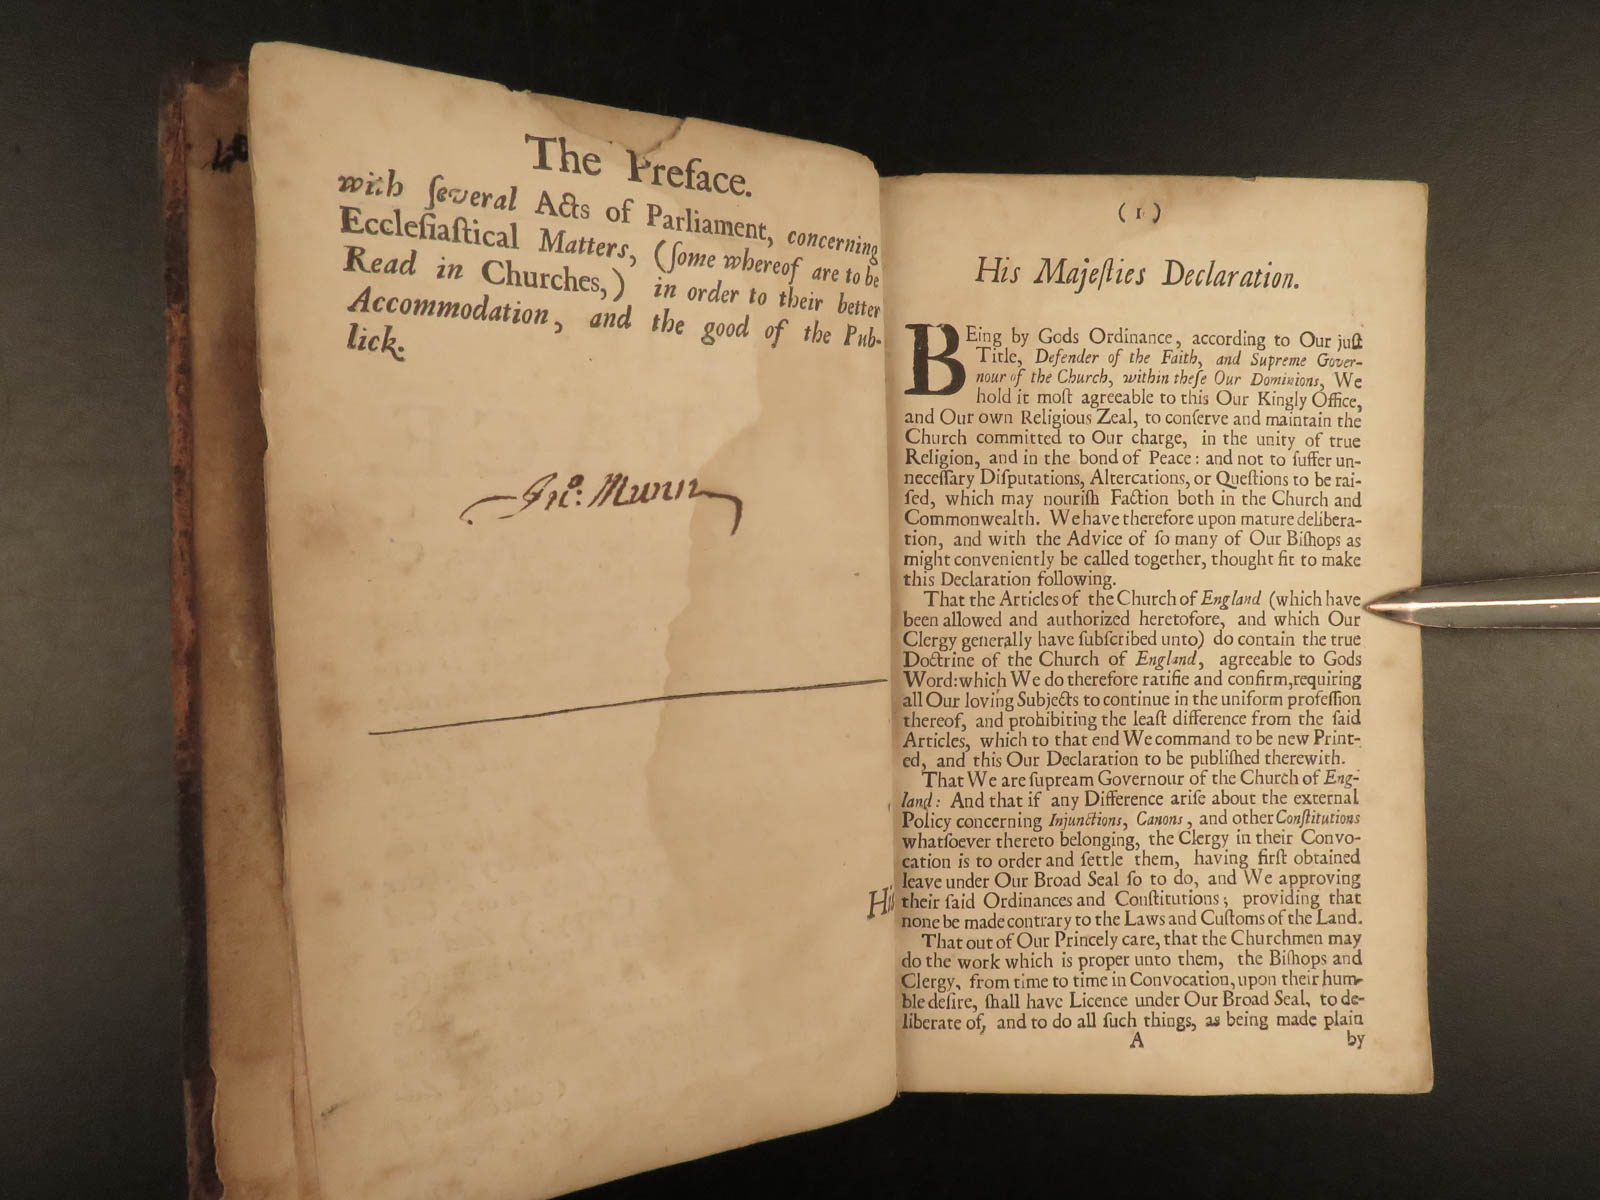 The Preface.
with ſeveral Acts of Parliament, concerning
Eccleſiaſtical Matters, (ſome whereof are to be
Read in Churches,) in order to their better
Accommodation, and the good of the Pub-
lick.
Jno: Munn
His
(1)
His Majeſties Declaration.
BEing by Gods Ordinance, according to Our juſt
Title, Defender of the Faith, and Supreme Gover-
nour of the Church, within theſe Our Dominions, We
hold it moſt agreeable to this Our Kingly Office,
and Our own Religious Zeal, to conſerve and maintain the
Church committed to Our charge, in the unity of true
Religion, and in the bond of Peace: and not to ſuffer un-
neceſſary Diſputations, Altercations, or Queſtions to be rai-
ſed, which may nouriſh Faction both in the Church and
Commonwealth. We have therefore upon mature delibera-
tion, and with the Advice of ſo many of Our Biſhops as
might conveniently be called together, thought fit to make
this Declaration following.
That the Articles of the Church of England (which have
been allowed and authorized heretofore, and which Our
Clergy generally have ſubſcribed unto) do contain the true
Doctrine of the Church of England, agreeable to Gods
Word: which We do therefore ratifie and confirm, requiring
all Our loving Subjects to continue in the uniform profeſſion
thereof, and prohibiting the leaſt difference from the ſaid
Articles, which to that end We command to be new Print-
ed, and this Our Declaration to be publiſhed therewith.
That We are ſupream Governour of the Church of Eng-
land: And that if any Difference ariſe about the external
Policy concerning Injunctions, Canons, and other Conſtitutions
whatſoever thereto belonging, the Clergy in their Convo-
cation is to order and ſettle them, having firſt obtained
leave under Our Broad Seal ſo to do, and We approving
their ſaid Ordinances and Conſtitutions; providing that
none be made contrary to the Laws and Cuſtoms of the Land.
That out of Our Princely care, that the Churchmen may
do the work which is proper unto them, the Biſhops and
Clergy, from time to time in Convocation, upon their hum-
ble deſire, ſhall have Licence under Our Broad Seal, to de-
liberate of, and to do all ſuch things, as being made plain
A by